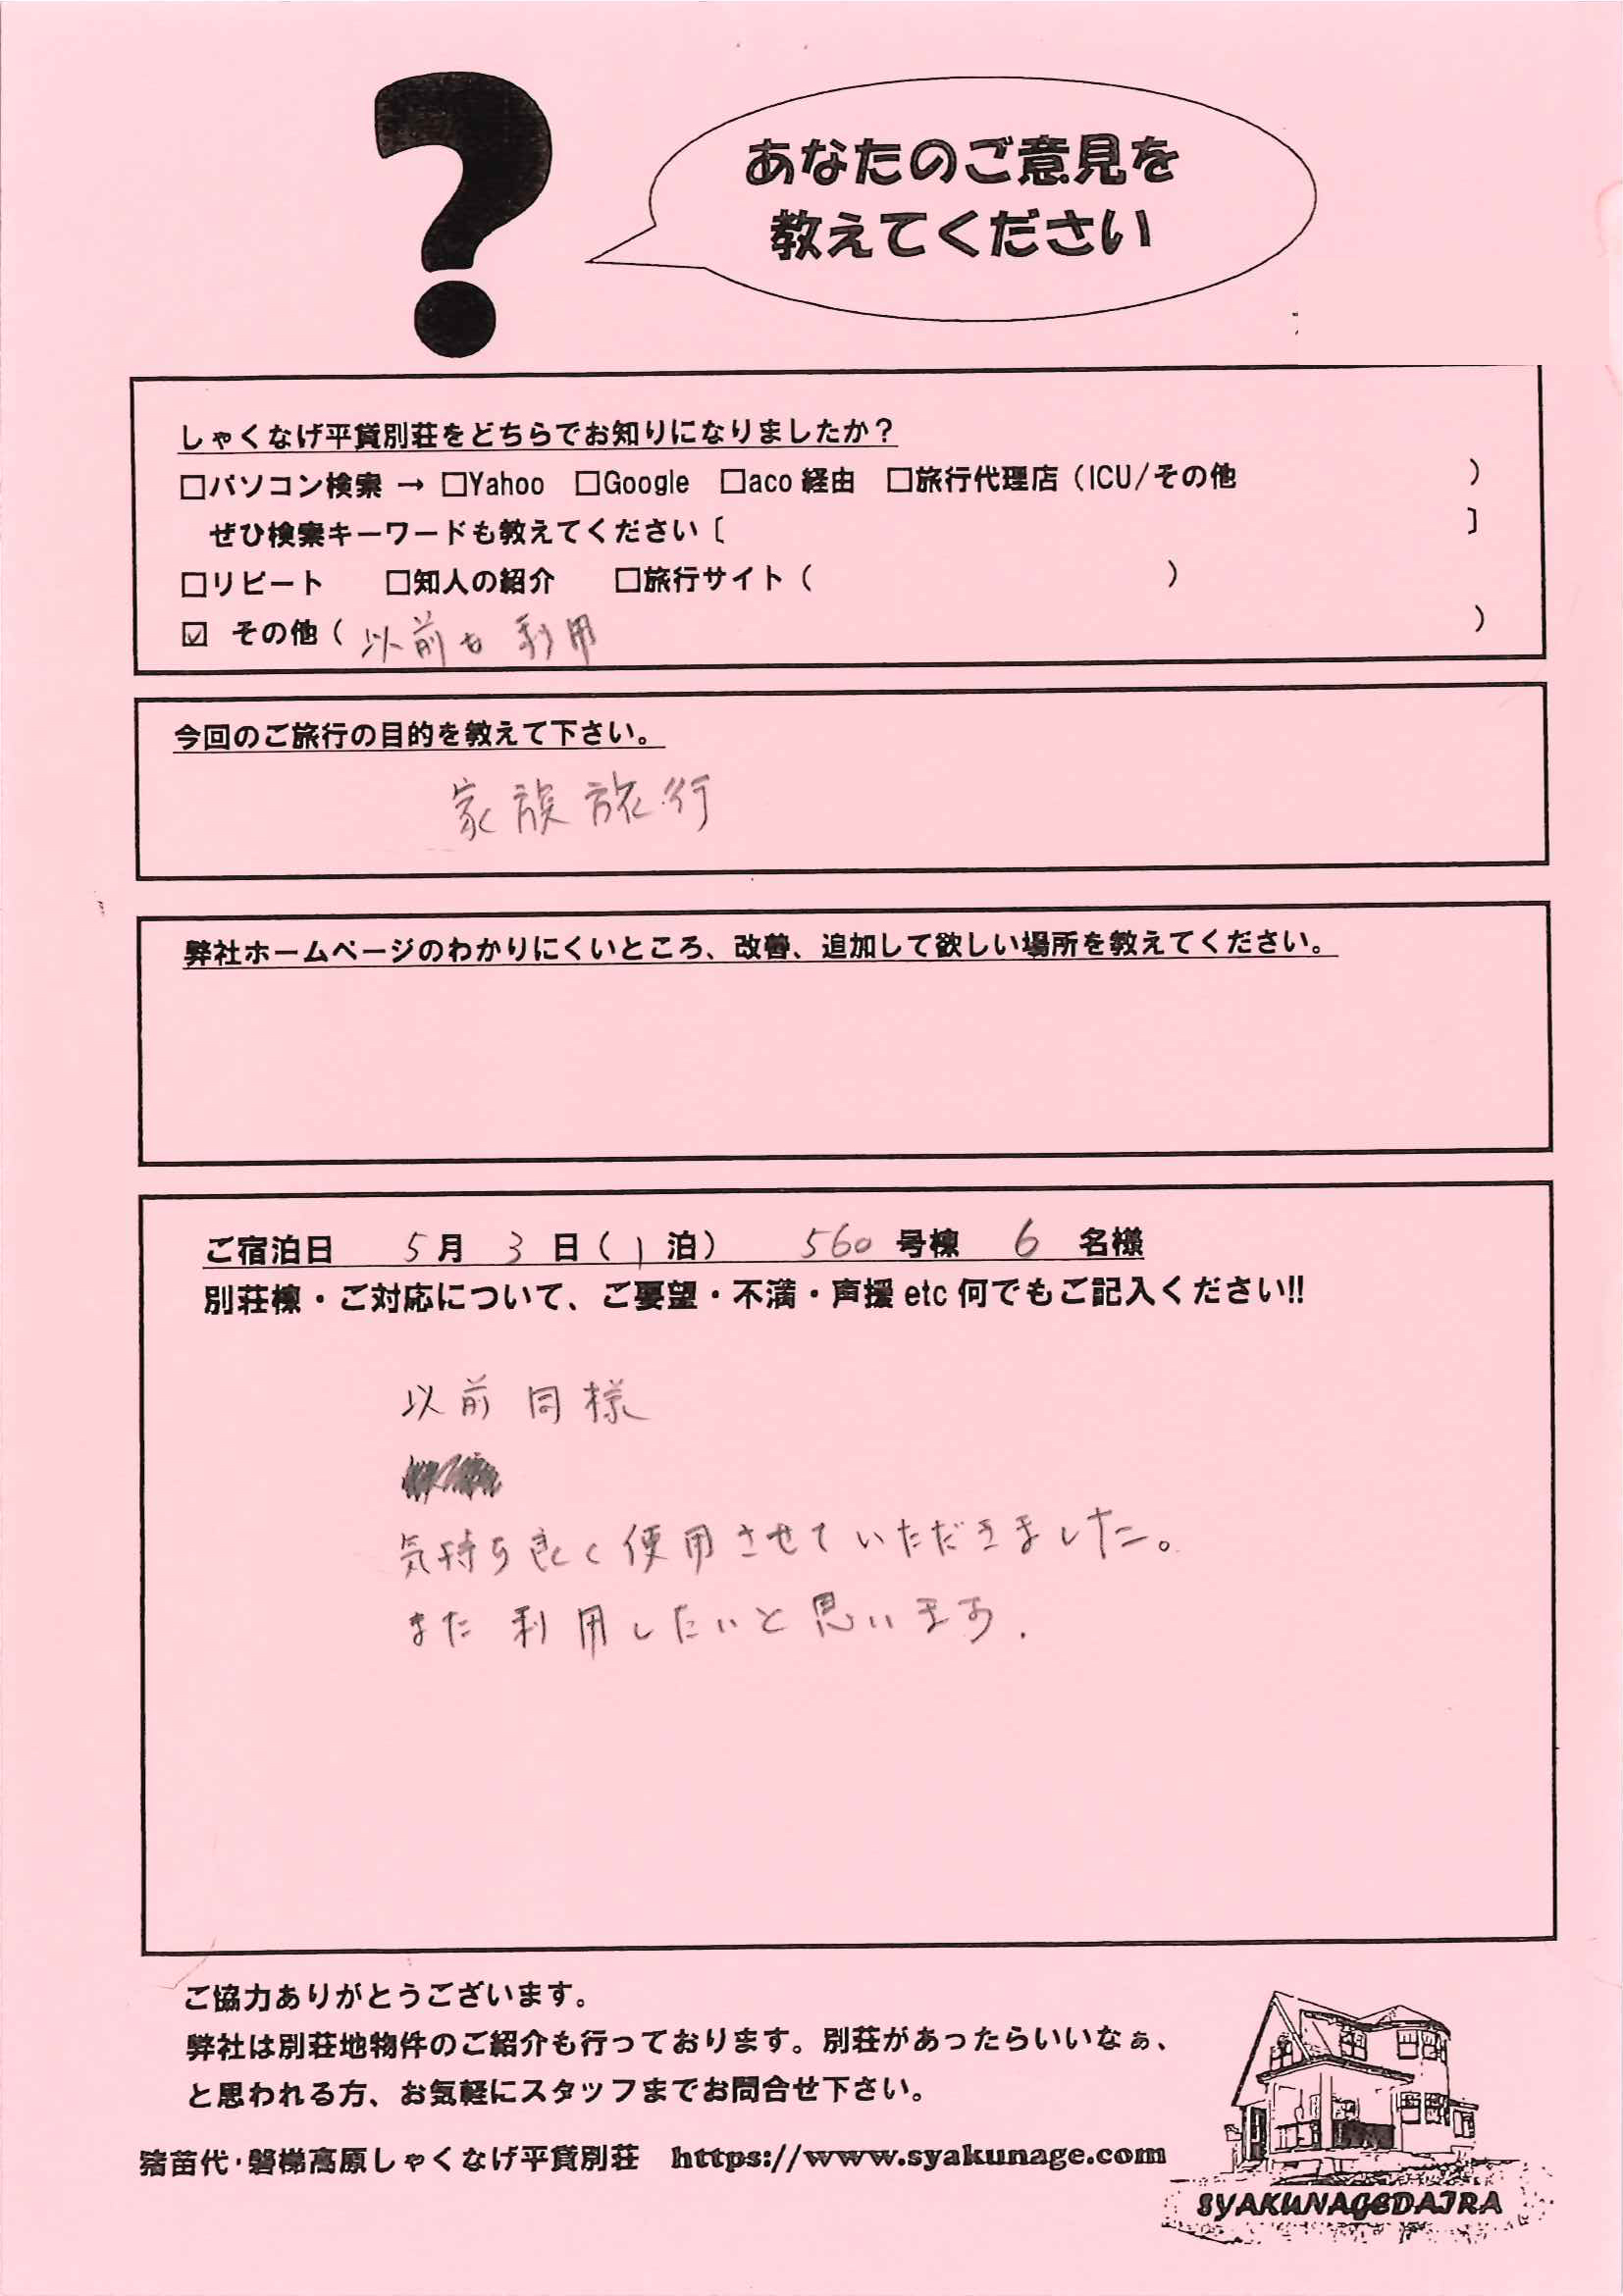 ?
あなたのご意見を
教えてください
しゃくなげ平貸別荘をどちらでお知りになりましたか？
□パソコン検索 → □Yahoo □Google □aco 経由 □旅行代理店（ICU/その他 ）
ぜひ検索キーワードも教えてください〔 〕
□リピート □知人の紹介 □旅行サイト（ ）
☑ その他（ 以前も利用 ）
今回のご旅行の目的を教えて下さい。
家族旅行
弊社ホームページのわかりにくいところ、改善、追加して欲しい場所を教えてください。
ご宿泊日 5月 3日（1泊） 560号棟 6名様
別荘棟・ご対応について、ご要望・不満・声援 etc 何でもご記入ください!!
以前同様
気持ち良く使用させていただきました。
また利用したいと思います.
ご協力ありがとうございます。
弊社は別荘地物件のご紹介も行っております。別荘があったらいいなぁ、
と思われる方、お気軽にスタッフまでお問合せ下さい。
猪苗代・磐梯高原しゃくなげ平貸別荘 https://www.syakunage.com
SYAKUNAGEDAIRA